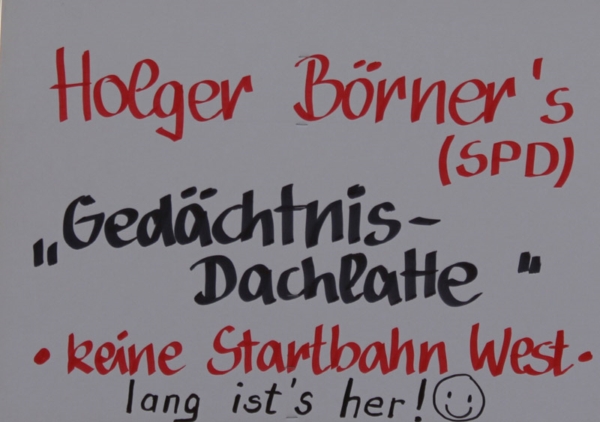 Holger Börner's
(SPD)
„Gedächtnis-
Dachlatte "
• keine Startbahn West •
lang ist's her! ☺